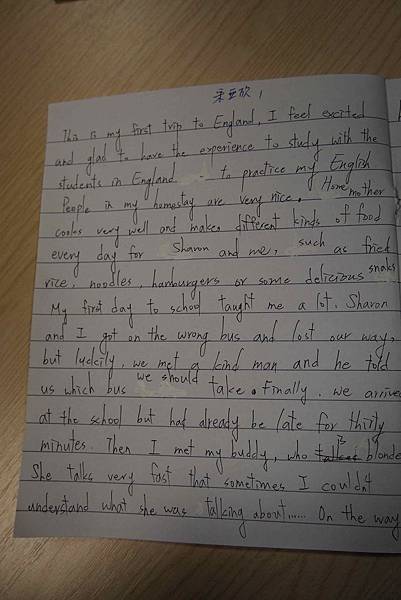 1
This is my first trip to England, I feel excited
and glad to have the experience to study with the
students in England to practice my English
People in my homestay are very nice. Home mother
cookes very well and makes different kinds of food
every day for Sharon and me, such as fried
rice, noodles, hamburgers or some delicious snaks
My first day to school taught me a lot. Sharon
and I got on the wrong bus and lost our way,
but luckily, we met a kind man and he told
us which bus we should take. Finally, we arrive
at the school but had already be late for thirty
minutes. Then I met my buddy, who is blonde
She talks very fast that sometimes I couldn't
understand what she was talking about...... On the way